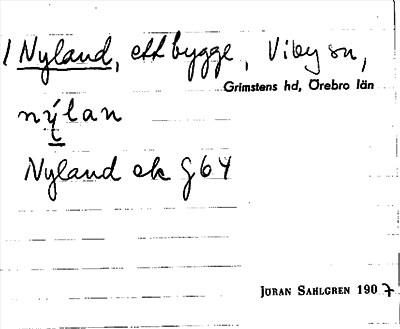 1 Nyland, ett bygge, Viby sn,
Grimstens hd, Örebro län
nýlan
t
Nyland ek G 64
JÖRAN SAHLGREN 1907